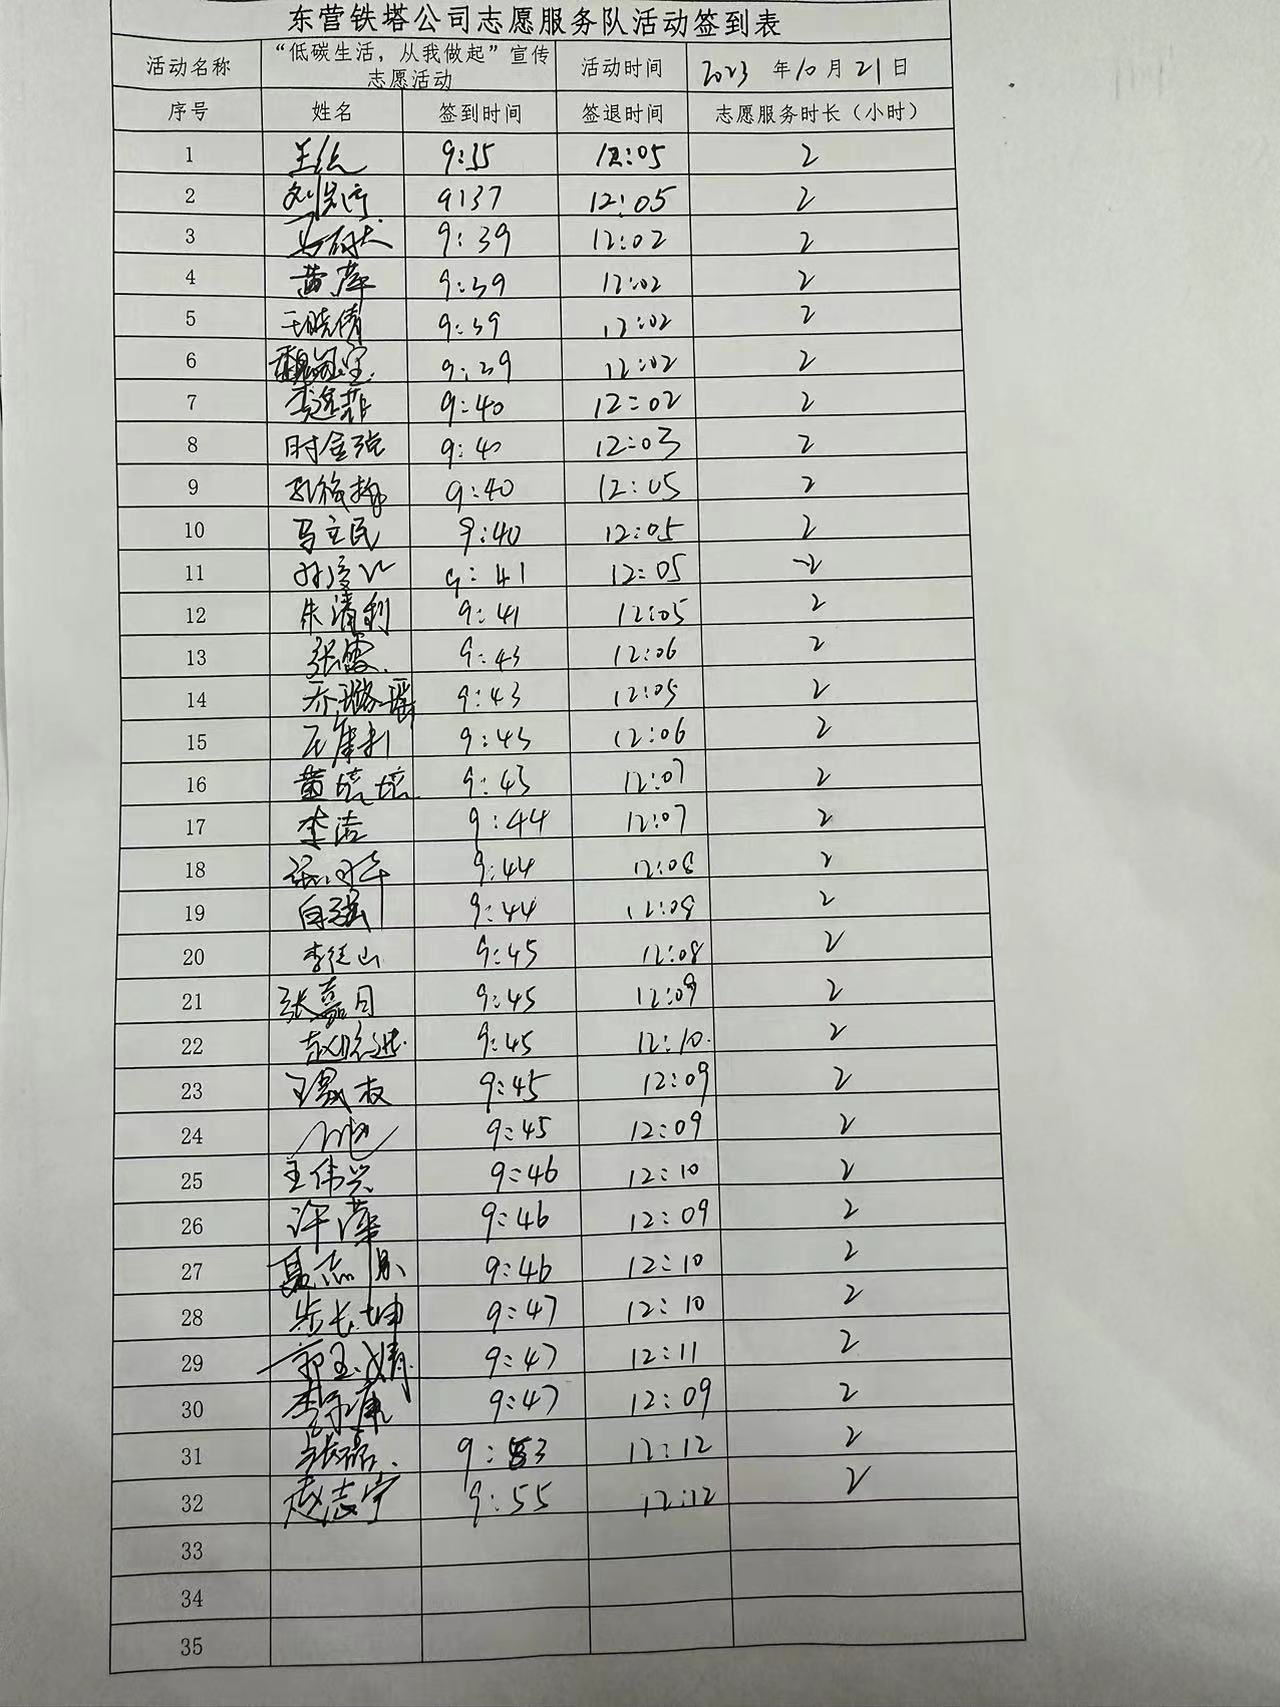 东营铁塔公司志愿服务队活动签到表
活动名称 “低碳生活，从我做起”宣传志愿活动 活动时间 2023 年 10 月 21 日
序号 姓名 签到时间 签退时间 志愿服务时长（小时）
1 9:35 12:05 2
2 9:37 12:05 2
3 9:39 12:02 2
4 黄萍 9:39 12:02 2
5 王晓倩 9:39 12:02 2
6 9:39 12:02 2
7 9:40 12:02 2
8 时金强 9:40 12:03 2
9 9:40 12:05 2
10 马立民 9:40 12:05 2
11 9:41 12:05 2
12 朱清利 9:41 12:05 2
13 张霞 9:43 12:06 2
14 乔璐瑶 9:43 12:05 2
15 9:43 12:06 2
16 9:43 12:07 2
17 李洁 9:44 12:07 2
18 9:44 12:08 2
19 白强 9:44 12:08 2
20 9:45 12:08 2
21 张嘉月 9:45 12:09 2
22 9:45 12:10 2
23 9:45 12:09 2
24 9:45 12:09 2
25 王伟兴 9:46 12:10 2
26 许萍 9:46 12:09 2
27 9:46 12:10 2
28 9:47 12:10 2
29 郭玉婧 9:47 12:11 2
30 9:47 12:09 2
31 张磊 9:53 12:12 2
32 赵志宁 9:55 12:12 2
33
34
35